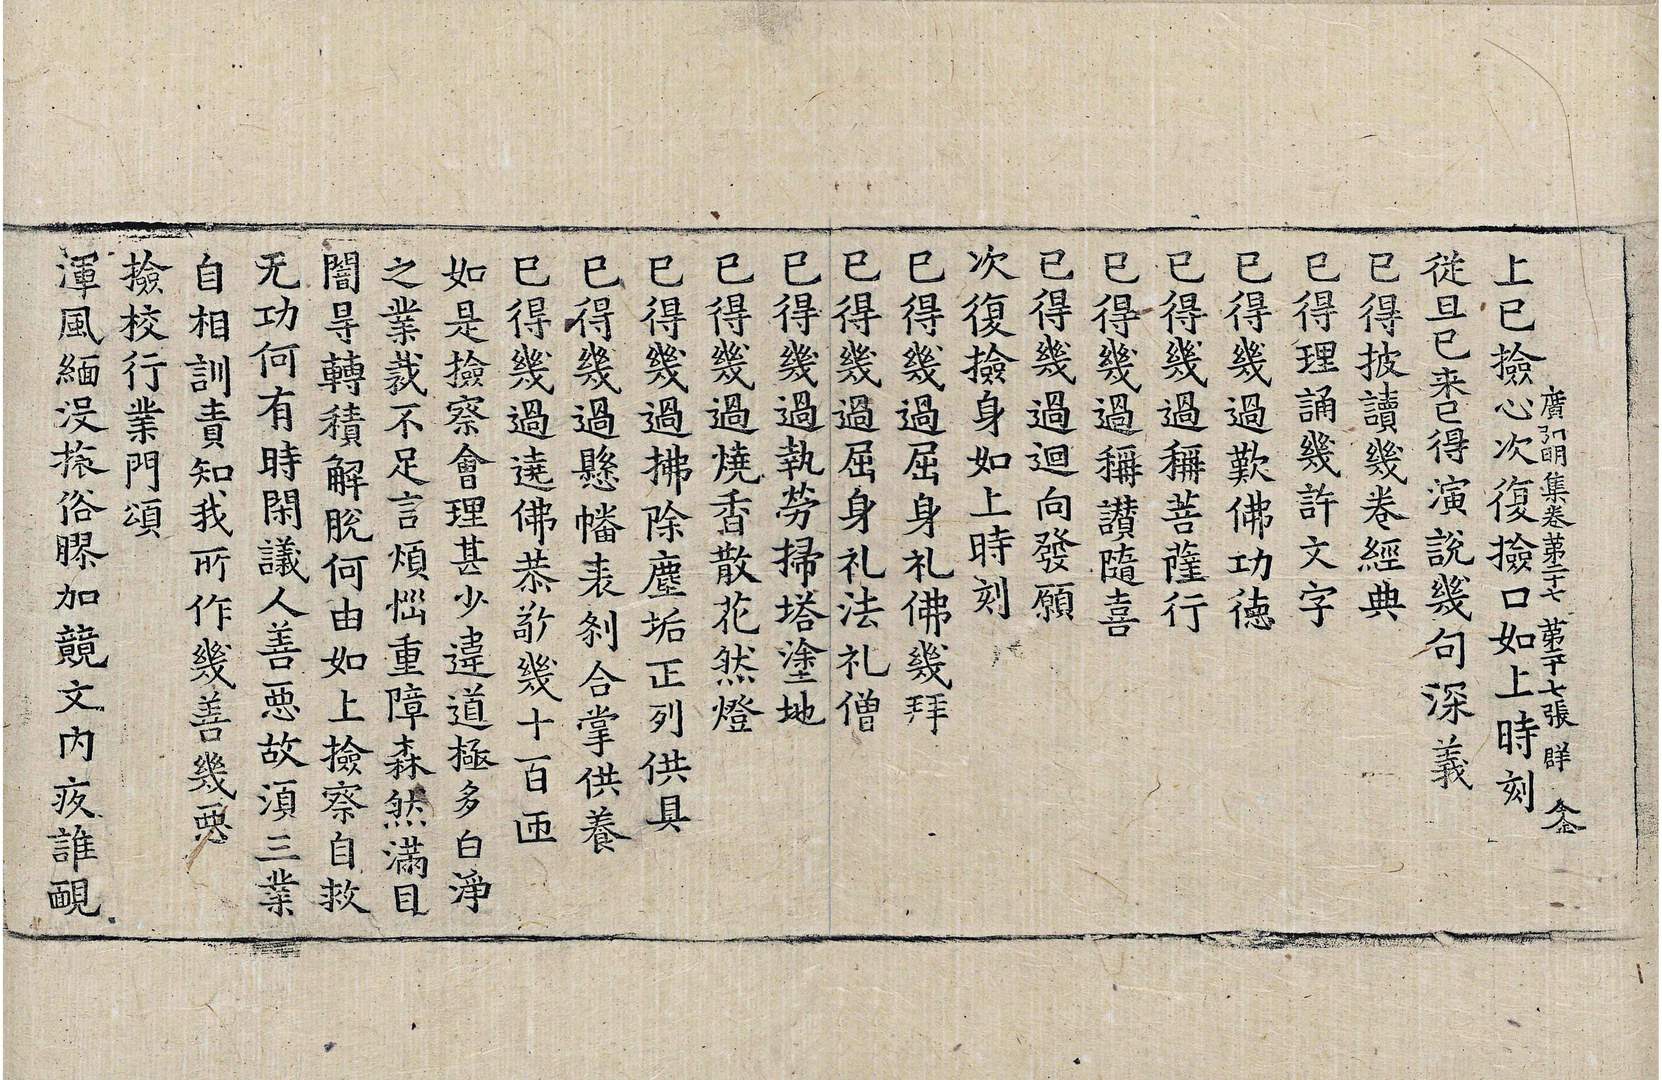 廣弘明集卷第二十七 第二十七張 群
上已撿心次復撿口如上時刻
從旦已来已得演說幾句深義
已得披讀幾卷經典
已得理誦幾許文字
已得幾過歎佛功德
已得幾過稱菩薩行
已得幾過稱讃隨喜
已得幾過迴向發願
次復撿身如上時刻
已得幾過屈身礼佛幾拜
已得幾過屈身礼法礼僧
已得幾過執勞掃塔塗地
已得幾過燒香散花然燈
已得幾過拂除塵垢正列供具
已得幾過懸幡表剎合掌供養
已得幾過遶佛恭敬幾十百匝
如是撿察會理甚少違道極多白淨
之業裁不足言煩惱重障森然滿目
闇㝵轉積解脫何由如上撿察自救
无功何有時閑議人善惡故須三業
自相訓責知我所作幾善幾惡
撿校行業門頌
渾風緬没掁俗膠加競文内疚誰覿